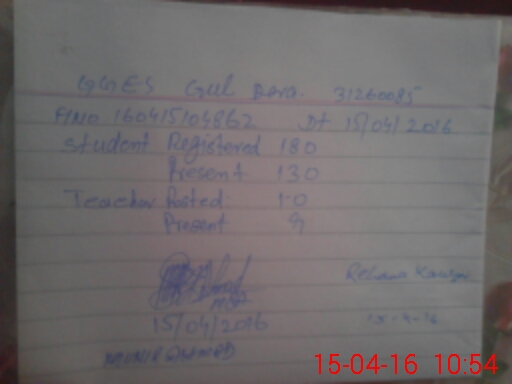 GGES Gul Dara. 31260085
A/No 160415104862 Dt 15/04/2016
Student Registered 180
Present 130
Teacher Posted 10
Present 9
15/04/2016
MUNIR AHMED
Rehana Kausar
15-4-16
15-04-16 10:54